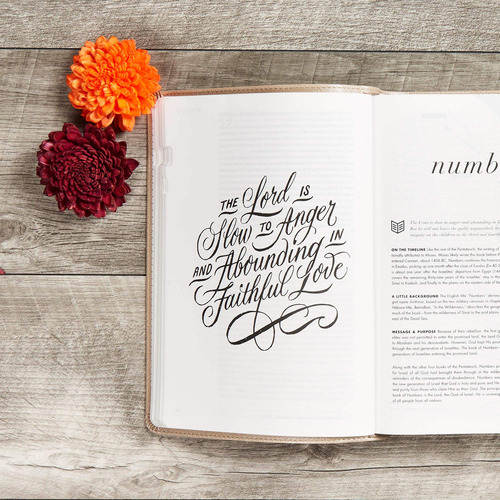 THE Lord IS
Slow TO Anger
AND Abounding IN
Faithful Love
numb
The LORD is slow to anger and abounding in
ON THE TIMELINE Like the rest of the Pentateuch, the writing of
tionally attributed to Moses. Moses likely wrote this book before th
entered Canaan, about 1406 BC. Numbers continues the historical
in Exodus, picking up one month after the close of Exodus
is about one year after the Israelites' departure from Egypt
covers the remaining thirty-nine years of the Israelites' stay in the
Sinai to Kadesh, and finally to the plains on the eastern side of the
A LITTLE BACKGROUND The English title "Numbers"
Hebrew title, Bemidbar, "In the Wilderness,"
much of the book—from the wilderness of Sinai to the arid plains
east of the Dead Sea.
MESSAGE & PURPOSE Because of their rebellion, the first ge
elites was not permitted to enter the promised land, the land G
to Abraham and his descendants. However, God kept His prom
through the next generation of Israelites. The book of Numbers
generation of Israelites entering the promised land.
Along with the other four books of the Pentateuch, Numbers p
for Israel of all God had brought them through in the wilder
reminders of the consequences of disobedience. Numbers was
the new generation of Israel that God is holy and pure and He
and purity from those who claim Him as their God. The principal
book of Numbers is the Lord, the God of Israel. He is sovereig
of all people from all nations.